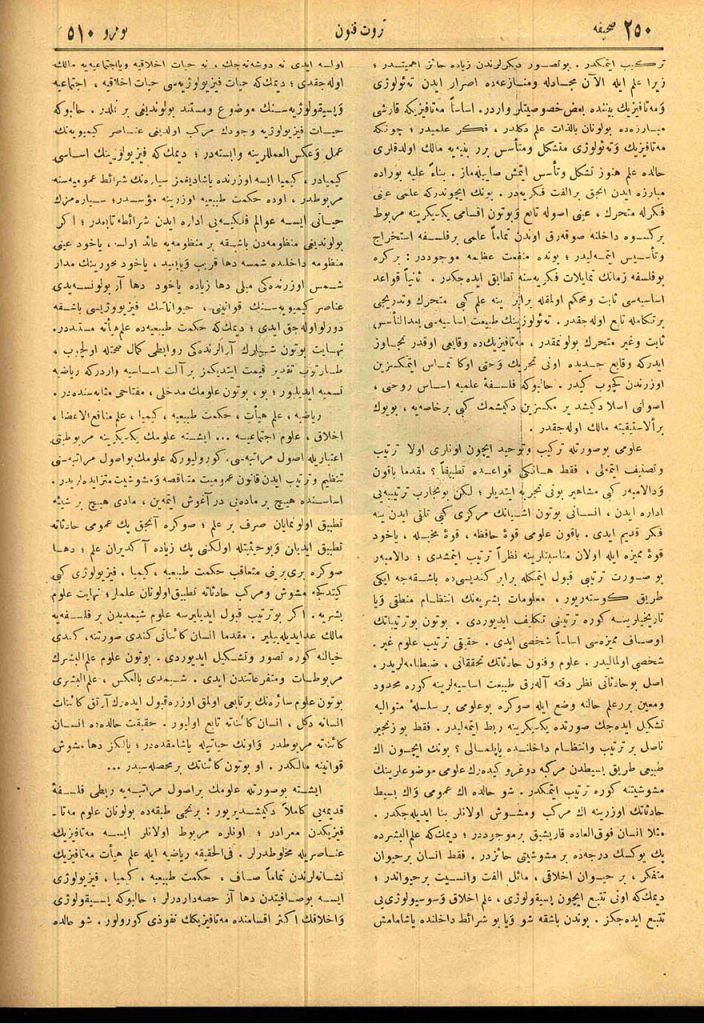 ٢٥٠ صحیفه
ثروت فنون
نومرو ٥١٠
تركیب ایتمكدر . بوتصور دیكرلرندن زیاده حائز اهمیتدر ؛
زیرا علم ایله الآن مجادله ومنازعه‌ده اصرار ایدن ته‌ئولوژی
ومه‌تافیزیك بیننده بعض خصوصیتلر واردر. اساساً مه‌تافیزیكه قارشی
مبارزه‌ده بولونان بالذات علم دكلدر ، فكر علمیدر ؛ چونكه
مه‌تافیزیك وته‌ئولوژی متشكل ومتأسس برر بنیه‌یه مالك اولدقلری
حالده علم هنوز تشكل وتأسس ایتمش صاییله‌ماز. بناءً علیه بوراده
مبارزه ایدن انجق برالفت فكریه‌در. بونك ایچوندركه علمی عینی
فكرله متحرك ، عینی اصوله تابع وبوتون اقسامی یكدیكرینه مربوط
بركسوه داخلنه صوقه‌رق اوندن تماماً علمی برفلسفه استخراج
وتأسیس ایتمه‌لیدر؛ بونده منفعت عظیمه موجوددر : بركره
بوفلسفه زمانك تمایلات فكریه‌سنه تطابق ایده‌جكدر. ثانیاً قواعد
اساسیه‌سی ثابت ومحكم اولمقله برابر ینه علم كبی متحرك وتدریجی
برتكامله تابع اوله‌جقدر . ته‌ئولوژینك طبیعت اساسیه‌سی بعدالتأسس
ثابت وغیر متحرك بولونمقدر ، مه‌تافیزیك‌ده وقایعی اوقدر تجاوز
ایدركه وقایع جدیده اونی تحریك وحتی اوكا تماس ایتمكسزین
اوزرندن كچوب كیدر . حالبوكه فلسفهٔ علمیه اساس روحی ،
اصولی اصلا دكیشدیرمكسزین دكیشمك كبی برخاصیه ، بویوك
برالاستیقیته مالك اوله‌جقدر .
علومی بوصورتله تركیب وتوحید ایچون اونلری اولا ترتیب
وتصنیف ایتمه‌لی ، فقط هانكی قواعده تطبیقاً ؟ مقدما باقون
ودالامبه‌ر كبی مشاهیر بونی تجربه ایتدیلر ؛ لكن بوتجارب ترتیبیه‌یی
اداره ایدن ، انسانی بوتون اشیانك مركزی كبی تلقی ایدن ینه
فكر قدیم ایدی . باقون علومی قوهٔ حافظه ، قوهٔ مخیله ، یاخود
قوهٔ ممیزه ایله اولان مناسبتلرینه نظراً ترتیب ایتمشدی ؛ دالامبه‌ر
بو صورت ترتیبی قبول ایتمكله برابر كندیسی‌ده باشقه‌جه ایكی
طریق كوسته‌ریور ، معلومات بشریه‌نك انتظام منطقی ویا
تاریخیلرینه كوره ترتیبنی تكلیف ایدیوردی . بوتون بوترتیباتك
اوصاف ممیزه‌سی اساساً شخصی ایدی . حقیقی ترتیب علوم غیر
شخصی اولمالیدر. علوم وفنون حادثاتك تحققاتی ، ضبطنامه‌لریدر.
اصل بوحادثاتی نظر دقته آله‌رق طبیعت اساسیه‌لرینه كوره محدود
ومعین برر علم حالنه وضع ایله صوكره بوعلومی بر سلسلهٔ متوالیه
تشكیل ایده‌جك صورتده یكدیكرینه ربط ایتمه‌لیدر. فقط بوزنجیر
ناصل بر ترتیب وانتظام داخلنده یاپلمالی ؟ بونك ایچون اك
طبیعی طریق بسیطدن مركبه دوغرو كیده‌رك علومی موضوعلرینك
مشوشیتنه كوره ترتیب ایتمكدر. شو حالده اك عمومی واك بسیط
حادثاتك اوزرینه اك مركب ومشوش اولانلر بنا ایدیله‌جكدر.
مثلا انسان فوق‌العاده قاریشیق برموجوددر ؛ دیمك‌كه علم‌البشرده
پك یوكسك درجه‌ده بر مشوشیتی حائزدر. فقط انسان برحیوان
متفكر ، بر حیوان اخلاقی ، مائل الفت وانسیت برحیواندر ؛
دیمك‌كه اونی تتبع ایچون پسیقولوژی ، علم اخلاق وسوسیولوژی‌یی
تتبع ایده‌جكز . بوندن باشقه شو ویا بو شرائط داخلنده یاشامامش
اولسه ایدی نه دوشنه‌جك ، نه حیات اخلاقیه ویااجتماعیه‌یه مالك
اوله‌جقدی ؛ دیمك‌كه حیات فیزیولوژیه‌سی حیات اخلاقیه ، اجتماعیه
وپسیقولوژیه‌سنك موضوع ومستند بولوندیغی بر تملدر . حالبوكه
حیات فیزیولوژیه وجودك مركب اولدیغی عناصر كیمیویه‌نك
عمل وعكس‌العمللرینه وابسته‌در ؛ دیمك‌كه فیزیولوژینك اساسی
كیمیادر ، كیمیا ایسه اوزرنده یاشادیغمز سیاره‌نك شرائط عمومیه‌سنه
مربوطدر ، اوده حكمت طبیعیه اوزرینه مؤسسدر ؛ سیاره‌مزك
حیاتی ایسه عوالم فلكیه‌یی اداره ایدن شرائطه تابعدر ؛ اكر
بولوندیغی منظومه‌دن باشقه بر منظومه‌یه عائد اولسه ، یاخود عینی
منظومه داخلنده شمسه دها قریب ویابعید ، یاخود محورینك مدار
شمس اوزرنده‌كی میلی دها زیاده یاخود دها آز بولونسه‌یدی
عناصر كیمیویه‌سنك قوانینی ، حیواناتك فیزیولوژیسی باشقه
دورلو اوله‌جق ایدی؛ دیمك‌كه حكمت طبیعیه‌ده علم هیأته مستنددر.
نهایت بوتون شیئلرك آرالرنده‌كی روابطی كمال صحتله اولچوب ،
طارتوب تقدیر قیمت ایتدیكمز بر آلت اساسیه واردركه ریاضیه
تسمیه ایدیلیور ؛ بو ، بوتون علومك مدخلی ، مفتاحی مثابه‌سنده‌در .
ریاضیه ، علم هیأت ، حكمت طبیعیه ، كیمیا ، علم منافع‌الاعضا ،
اخلاق ، علوم اجتماعیه ... ایشته علومك یكدیكرینه مربوطیتی
اعتباریله اصول مراتبه‌سی. كورولیوركه علومك بواصول مراتبه‌سنی
تنظیم وترتیب ایدن قانون عمومیت متناقصه ومشوشیت متزایده‌لریدر.
اساسنده هیچ بر ماده‌یی درآغوش ایتمه‌ین ، مادی هیچ بر شیئه
تطبیق اولونمایان صرف بر علم ؛ صوكره آنجق پك عمومی حادثاته
تطبیق ایدیلن وبوحیثیتله اولكنی پك زیاده آكدیران علم ؛ دها
صوكره بری‌برینی متعاقب حكمت طبیعیه ، كیمیا ، فیزیولوژی كبی
كیتدكجه مشوش ومركب حادثاته تطبیق‌اولونان علملر ؛ نهایت علوم
بشریه . اكر بوترتیب قبول ایدیلیرسه علوم شیمدیدن بر فلسفه‌یه
مالك عدایدیله‌بیلیر. مقدما انسان كائناتی كندی صورتنه، كندی
خیالنه كوره تصور وتشكیل ایدیوردی . بوتون علوم علم‌البشرك
مربوطات ومتفرعاتندن ایدی . شیمدی بالعكس ، علم‌البشری
بوتون علوم سائره‌نك برتابعی اولمق اوزره قبول ایده‌رك آرتق كائنات
انسانه دكل ، انسان كائناته تابع اولیور. حقیقت حالده‌ده انسان
كائناته مربوطدر واونك حیاتیله یاشامقده‌در ؛ یالكز دها مشوش
قوانینه مالكدر. او بوتون كائناتك برمحصله‌سیدر ...
ایشته بوصورتله علومك براصول مراتبه‌یه ربطی فلسفهٔ
قدیمه‌یی كاملاً دكیشدیریور : برنجی طبقه‌ده بولونان علوم مه‌تا-
فیزیكدن معرادر ؛ اونلره مربوط اولانلر ایسه مه‌تافیزیك
عناصریله مخلوطدرلر. فی‌الحقیقه ریاضیه ایله علم هیأت مه‌تافیزیك
نشانه‌لرندن تماماً صاف ، حكمت طبیعیه ، كیمیا ، فیزیولوژی
ایسه بوصافیتدن دها آز حصه‌داردرلر ؛ حالبوكه پسیقولوژی
واخلاقك اكثر اقسامنده مه‌تافیزیكك نفوذی كورولور. شو حالده